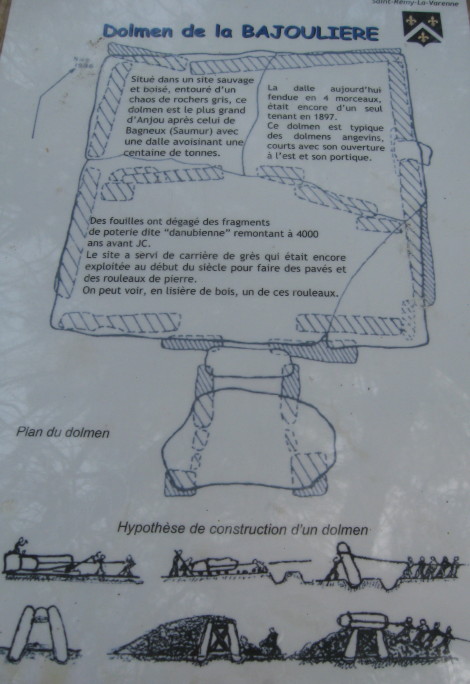 Saint-Rémy-La-Varenne
Dolmen de la BAJOULIERE
Situé dans un site sauvage
et boisé, entouré d'un
chaos de rochers gris, ce
dolmen est le plus grand
d'Anjou après celui de
Bagneux (Saumur) avec
une dalle avoisinant une
centaine de tonnes.
La dalle aujourd'hui
fendue en 4 morceaux,
était encore d'un seul
tenant en 1897.
Ce dolmen est typique
des dolmens angevins,
courts avec son ouverture
à l'est et son portique.
Des fouilles ont dégagé des fragments
de poterie dite "danubienne" remontant à 4000
ans avant JC.
Le site a servi de carrière de grès qui était encore
exploitée au début du siècle pour faire des pavés et
des rouleaux de pierre.
On peut voir, en lisière de bois, un de ces rouleaux.
Plan du dolmen
Hypothèse de construction d'un dolmen